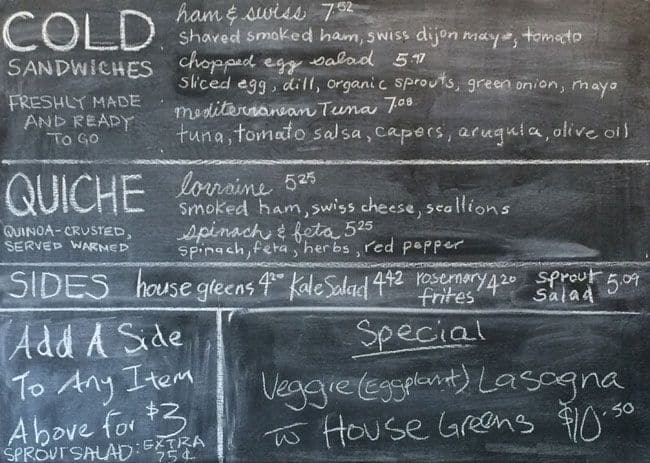 COLD
SANDWICHES
FRESHLY MADE
AND READY
TO GO
ham & swiss 7.52
shaved smoked ham, swiss dijon mayo, tomato
chopped egg salad 5.97
sliced egg, dill, organic sprouts, green onion, mayo
mediterranean Tuna 7.08
tuna, tomato salsa, capers, arugula, olive oil
QUICHE
QUINOA-CRUSTED,
SERVED WARMED
lorraine 5.25
smoked ham, swiss cheese, scallions
spinach & feta 5.25
spinach, feta, herbs, red pepper
SIDES house greens 4.20 Kale Salad 4.42 rosemary frites 4.20 sprout salad 5.09
Add A Side
To Any Item
Above for $3
SPROUT SALAD: EXTRA
75¢
Special
Veggie (Eggplant) Lasagna
w House Greens $10.50